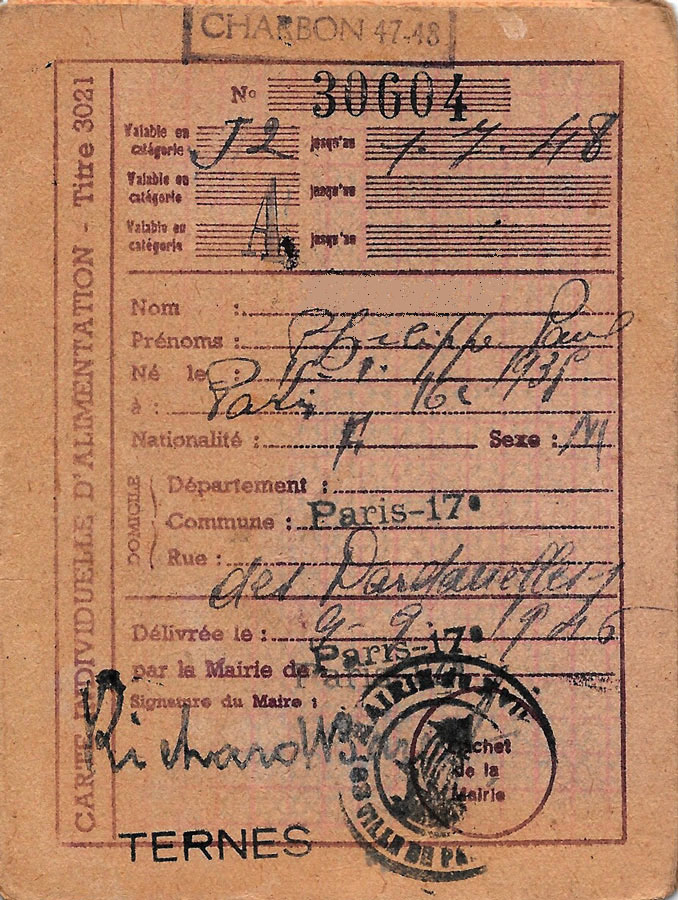 CHARBON 47-48
CARTE INDIVIDUELLE D'ALIMENTATION - Titre 3021
N° 30604
Valable en catégorie J2 jusqu'au 1.7.48
Valable en catégorie jusqu'au
Valable en catégorie A jusqu'au
Nom :
Prénoms : Philippe Paul
Né le : 1935
à : Paris 16e
Nationalité : F Sexe : M
DOMICILE
Département :
Commune : Paris-17e
Rue : des Dardanelles
Délivrée le : 9-9-1946
par la Mairie de Paris-17e
Signature du Maire :
Richard
Cachet
de la
Mairie
MAIRIE DU XVII
VILLE DE PA
TERNES